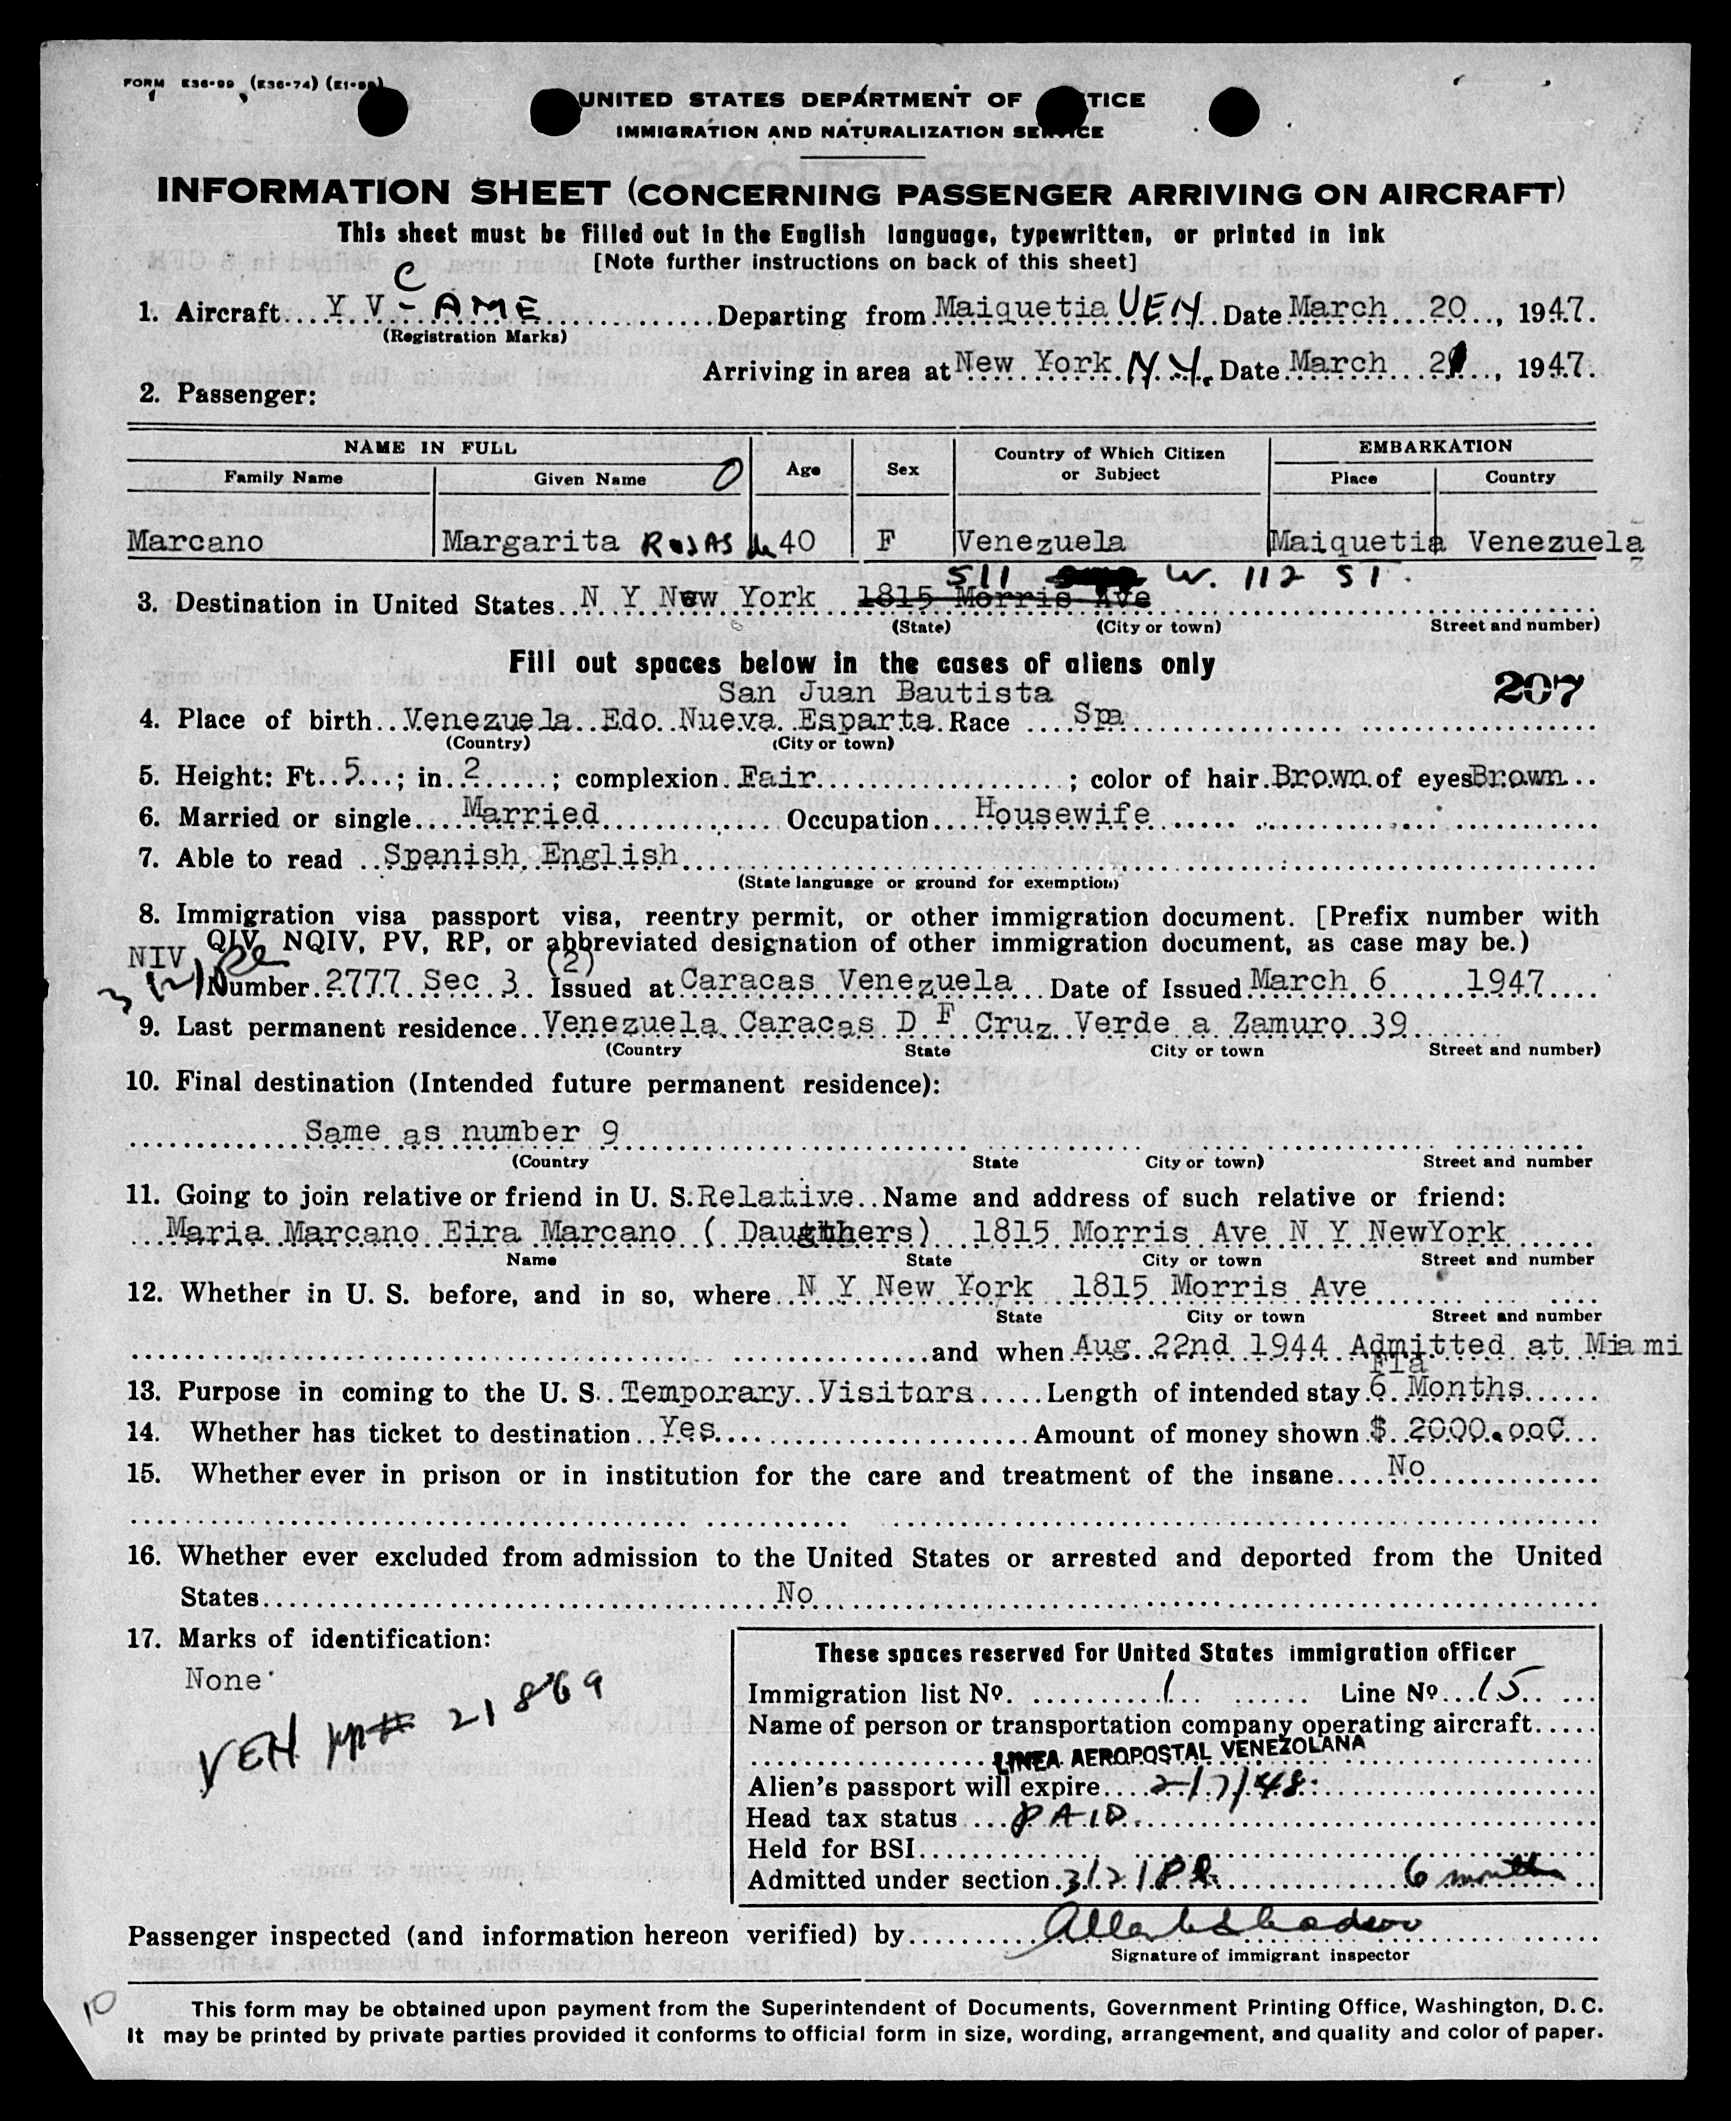 FORM E36-99 (E36-74) (E1-99)
UNITED STATES DEPARTMENT OF TICE
IMMIGRATION AND NATURALIZATION SERVICE
INFORMATION SHEET (CONCERNING PASSENGER ARRIVING ON AIRCRAFT)
This sheet must be filled out in the English language, typewritten, or printed in ink
[Note further instructions on back of this sheet]
C
1. Aircraft Y V - AME Departing from Maiquetia VEN Date March 20, 1947.
(Registration Marks)
Arriving in area at New York N.Y. Date March 21, 1947.
2. Passenger:
NAME IN FULL Age Sex Country of Which Citizen or Subject EMBARKATION
Family Name Given Name O Place Country
Marcano Margarita ROJAS de 40 F Venezuela Maiquetia Venezuela
511 W. 112 ST.
3. Destination in United States N Y New York 1815 Morris Ave
(State) (City or town) Street and number)
Fill out spaces below in the cases of aliens only
San Juan Bautista 207
4. Place of birth Venezuela Edo Nueva Esparta Race Spa
(Country) (City or town)
5. Height: Ft. 5; in. 2; complexion Fair; color of hair Brown of eyes Brown
6. Married or single Married Occupation Housewife
7. Able to read Spanish English
(State language or ground for exemption)
8. Immigration visa passport visa, reentry permit, or other immigration document. [Prefix number with
NIV QIV, NQIV, PV, RP, or abbreviated designation of other immigration document, as case may be.)
(2)
Number 2777 Sec 3 Issued at Caracas Venezuela Date of Issued March 6 1947
9. Last permanent residence Venezuela Caracas D F Cruz Verde a Zamuro 39
(Country State City or town Street and number)
10. Final destination (Intended future permanent residence):
Same as number 9
(Country State City or town) Street and number
11. Going to join relative or friend in U. S. Relative Name and address of such relative or friend:
Maria Marcano Eira Marcano ( Daugthers) 1815 Morris Ave N Y NewYork
Name State City or town Street and number
12. Whether in U. S. before, and in so, where N Y New York 1815 Morris Ave
State City or town Street and number
and when Aug. 22nd 1944 Admitted at Miami
Fla
13. Purpose in coming to the U. S. Temporary Visitors Length of intended stay 6 Months
14. Whether has ticket to destination Yes Amount of money shown $ 2000.000
15. Whether ever in prison or in institution for the care and treatment of the insane No
16. Whether ever excluded from admission to the United States or arrested and deported from the United
States No
17. Marks of identification:
None
VEN PP# 21869
These spaces reserved for United States immigration officer
Immigration list No. 1 Line No. 15
Name of person or transportation company operating aircraft
LINEA AEROPOSTAL VENEZOLANA
Alien's passport will expire 2/7/48
Head tax status PAID
Held for BSI
Admitted under section 3/2/ 6 months
Passenger inspected (and information hereon verified) by
Signature of immigrant inspector
10
This form may be obtained upon payment from the Superintendent of Documents, Government Printing Office, Washington, D. C.
It may be printed by private parties provided it conforms to official form in size, wording, arrangement, and quality and color of paper.